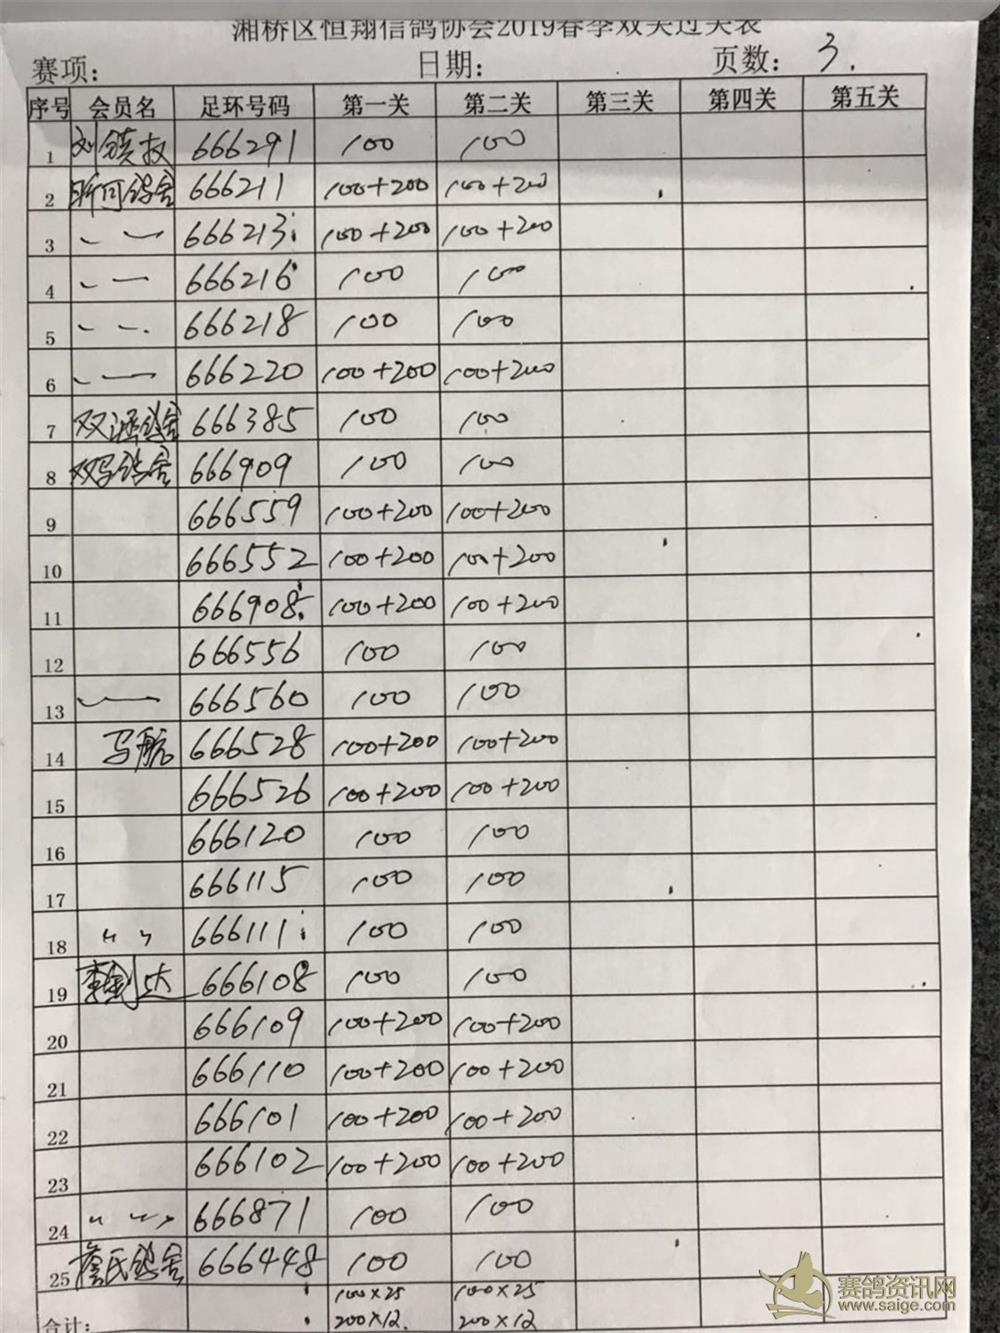 湘桥区恒翔信鸽协会2019春季双关过关表
赛项： 日期： 页数：3.
序号 会员名 足环号码 第一关 第二关 第三关 第四关 第五关
1 刘 666291 100 100
2 昕何鸽舍 666211 100+200 100+200
3 666213 100+200 100+200
4 666216 100 100
5 666218 100 100
6 666220 100+200 100+200
7 双涯鸽舍 666385 100 100
8 双马鸽舍 666909 100 100
9 666559 100+200 100+200
10 666552 100+200 100+200
11 666908 100+200 100+200
12 666556 100 100
13 666560 100 100
14 马航 666528 100+200 100+200
15 666526 100+200 100+200
16 666120 100 100
17 666115 100 100
18 〃 666111 100 100
19 李剑达 666108 100 100
20 666109 100+200 100+200
21 666110 100+200 100+200
22 666101 100+200 100+200
23 666102 100+200 100+200
24 〃 666871 100 100
25 詹氏鸽舍 666448 100 100
100×25 100×25
合计： 200×12. 200×12
赛鸽资讯网
www.saige.com